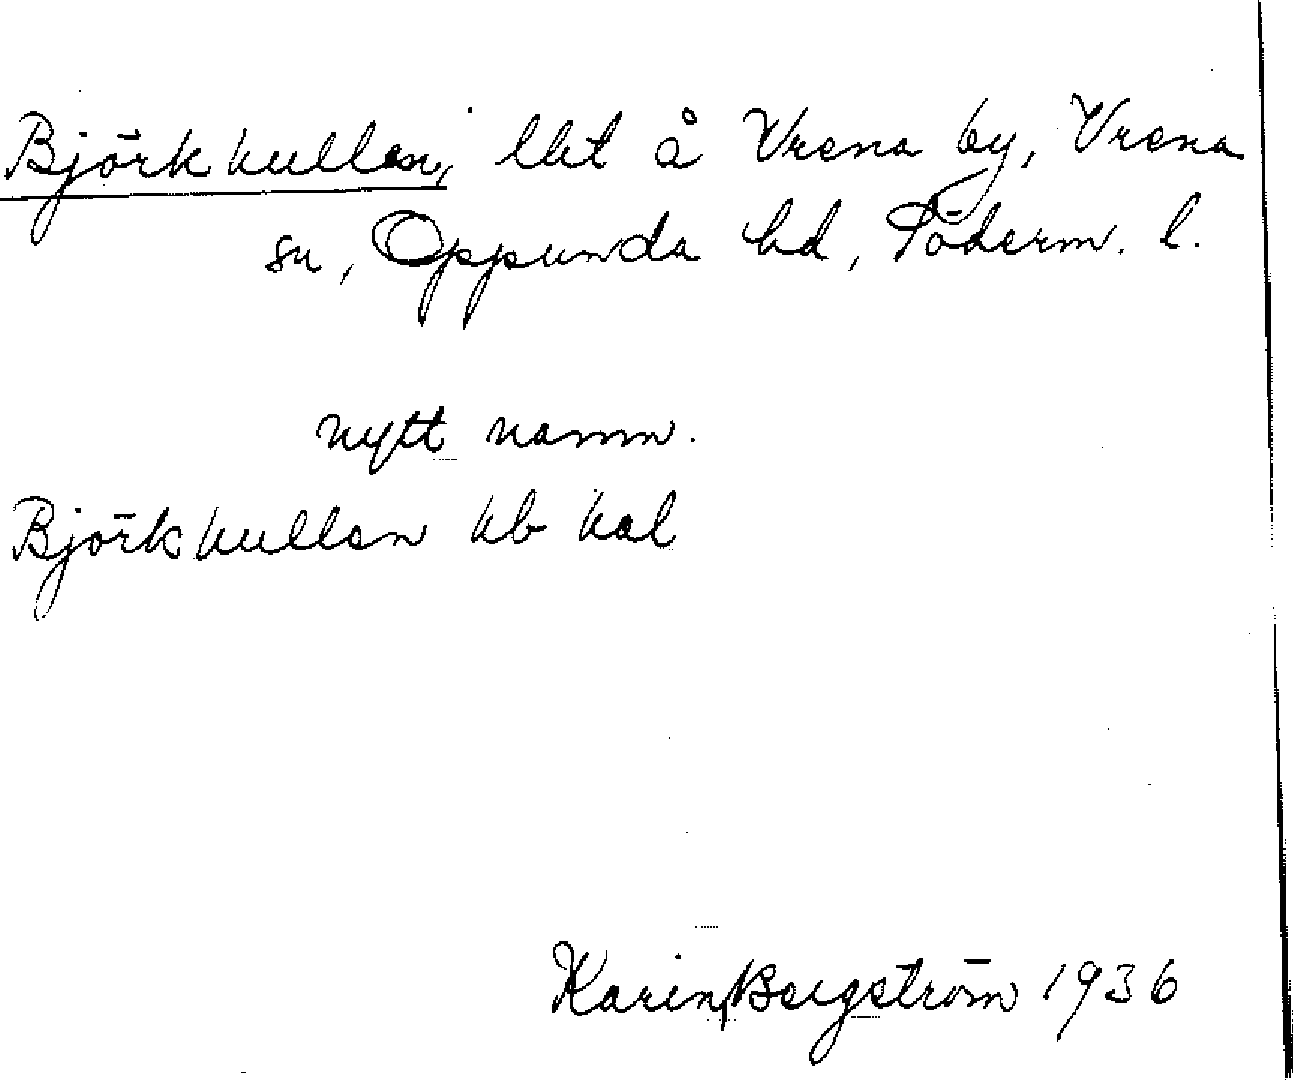 Björkkullen, lht å Vrena by, Vrena
sn, Oppunda hd, Söderm. l.
nytt namn.
Björkkullen kb kal
Karin Bergström 1936